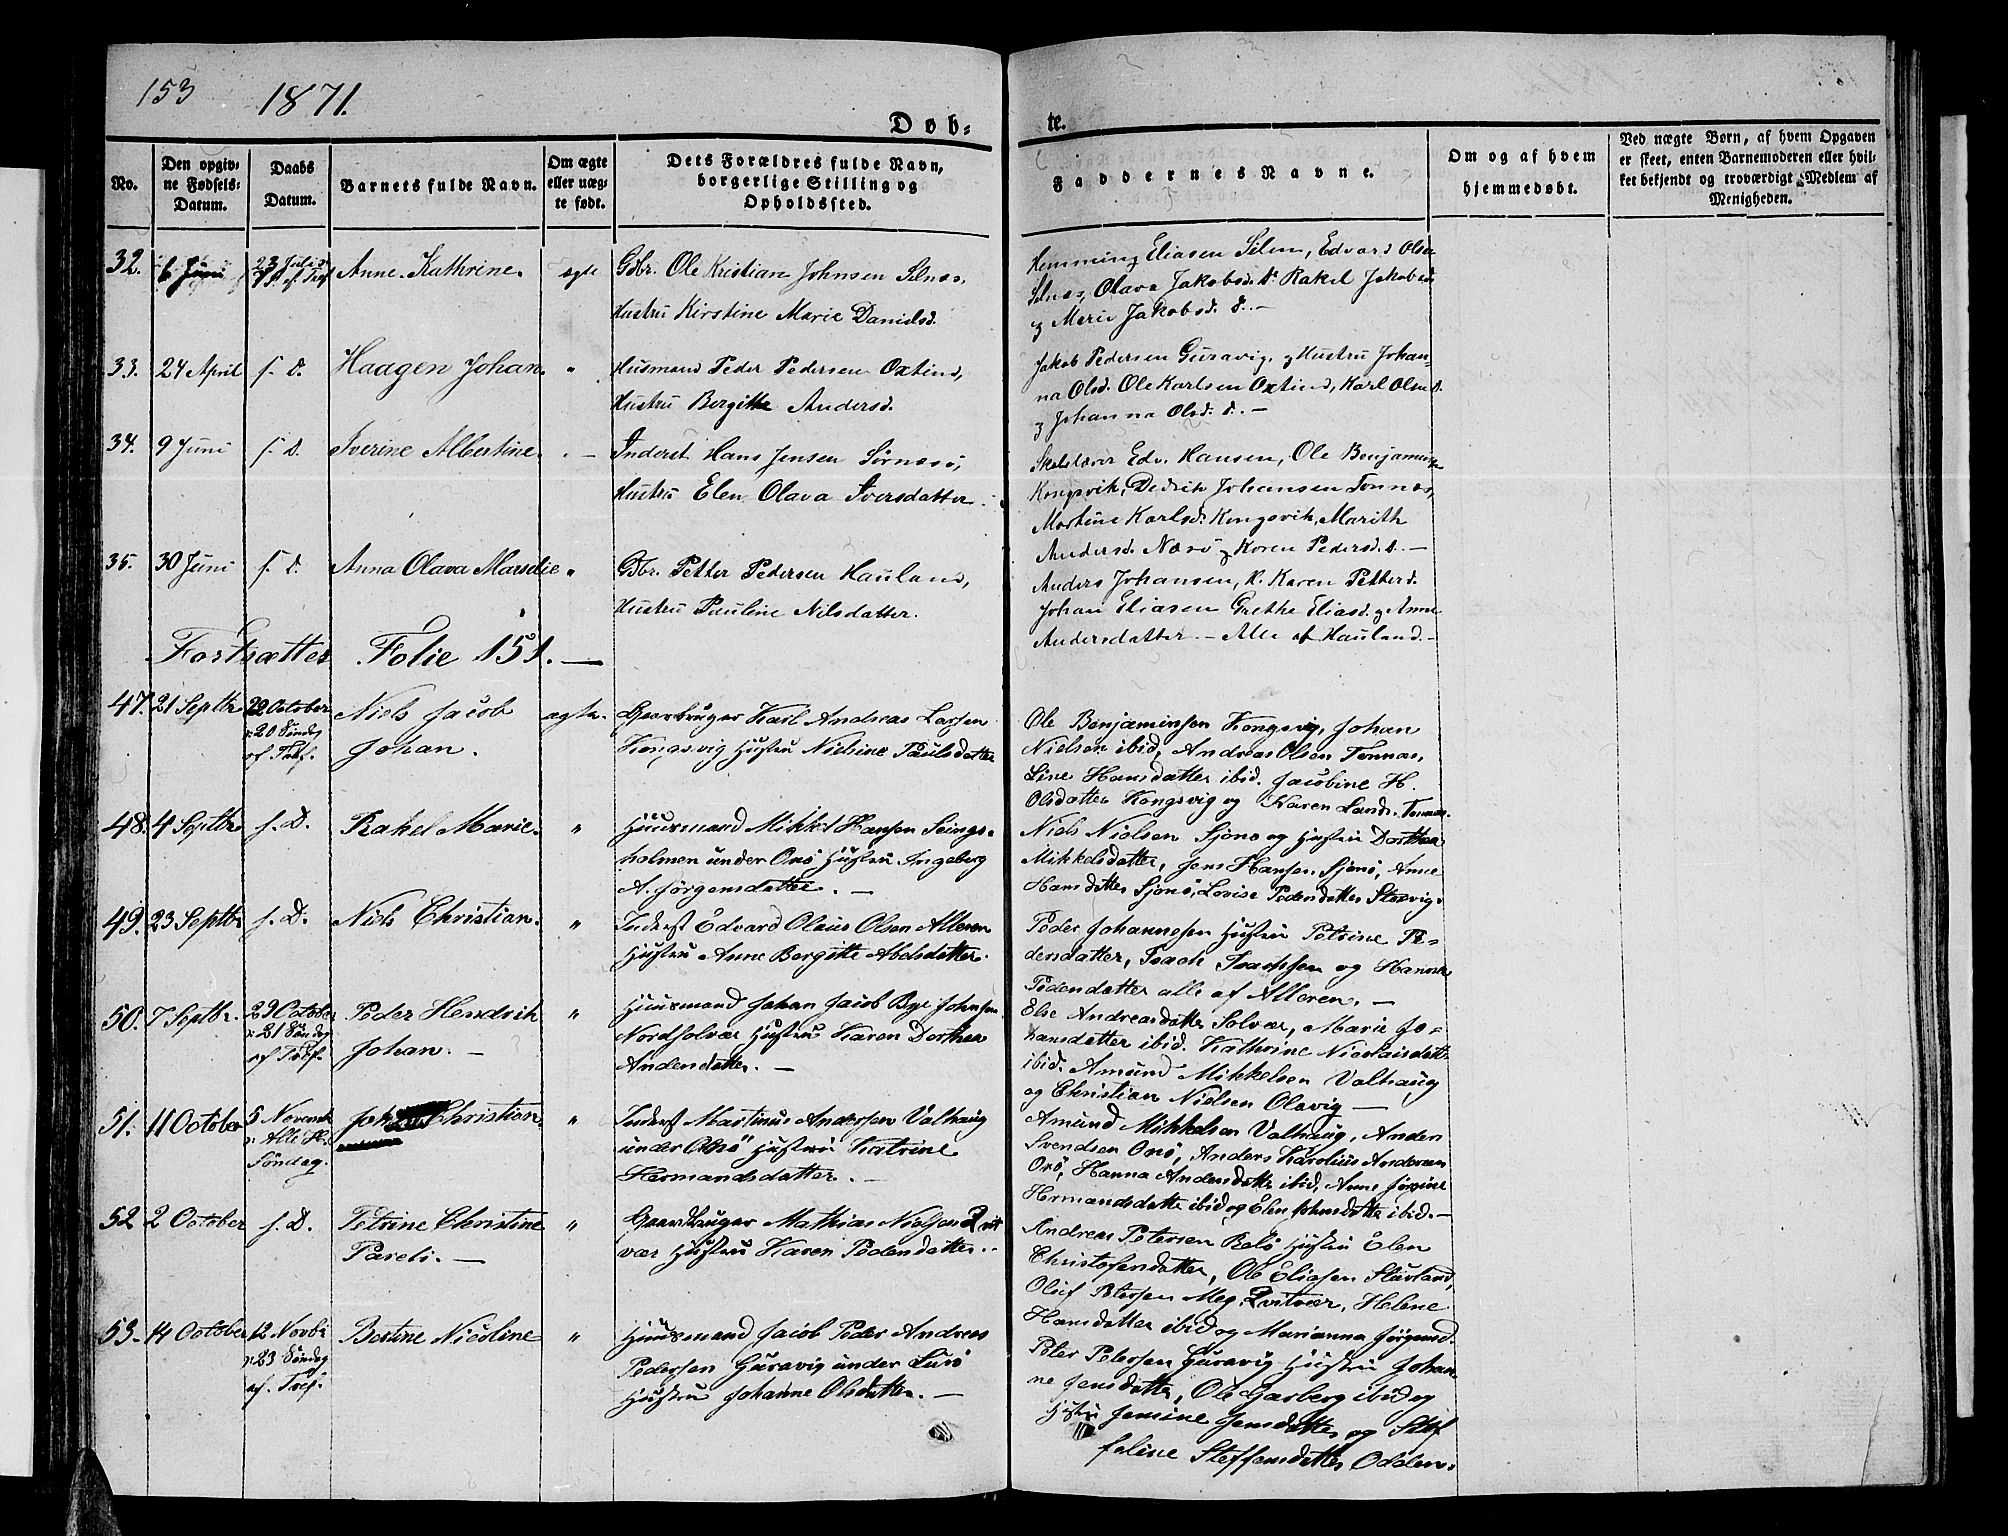 153 1871.
Døb-
te.
No.
Den opgiv-
ne Fødsels-
Datum.
Daabs
Datum.
Barnets fulde Navn.
Om ægte
eller uæg-
te født.
Dets Forældres fulde Navn,
borgerlige Stilling og
Opholdssted.
Faddernes Navne.
Om og af hvem
hjemmedøbt.
Ved uægte Børn, af hvem Opgaven
er skeet, enten Barnemoderen eller hvil-
ket bekjendt og troværdigt Medlem af
Menigheden.
32. 6 Juni 23 Juli Anne Kathrine. ægte
Gdbr. Ole Kristian Johnsen Selnes,
Hustru Kirstine Marie Danielsd.
Hemming Eliasen Selnes, Edvard Olsen
Selnes, Olava Jakobsd. Rakel Jakobsd.
og Merie Jakobsd. d. -
33. 24 April s. D. Haagen Johan. "
Husmand Peder Pedersen Oxtind,
Hustru Bergitte Andersd.
Jakob Pedersen Guravig, og Hustru Johan-
na Olsd. Ole Karlsen Oxtind, Karl Olsen d.
og Johanna Olsd. d. -
34. 9 Juni s. D. Iverine Albertine. -
Inderst Hans Jensen Sørnesø,
Hustru Elen Olava Iversdatter.
Skolelærer Edv. Hansen, Ole Benjaminsen
Kongsvik, Dedrik Johansen Tonnes,
Martine Karlsd. Kongsvik, Marith
Andersd. Næsø og Karen Pedersd. d. -
35. 30 Juni s. D. Anna Olava Marselie "
Gdbr. Petter Pedersen Hauland,
Hustru Pauline Nilsdatter.
Anders Johansen, K. Karen Petterd.
Johan Eliasen Grethe Eliasd. og Anne
Andersdatter. - Alle af Hauland. -
Fortsættes Folie 151. -
47. 21 Septbr. 22 October
20 Søndag
af Tref.
Niels Jacob
Johan.
ægte.
Gaardbruger Karl Andreas Larsen
Kongsvig Hustru Nielsine Paulsdatter
Ole Benjaminsen Kongsvig, Johan
Nielsen ibid, Andreas Olsen Tonnes,
Line Hansdatter ibid. Jacobine H.
Olsdatter Kongsvig og Karen Lands. Tonnes.
48. 4 Septbr. s. D. Rakel Marie. "
Huusmand Mikkel Hansen Seings-
holmen under Onø Hustru Ingeberg
A. Jørgensdatter. -
Niels Nielsen Sjonø og Hustru Dorthea
Mikkelsdatter, Jens Hansen Sjonø, Anne
Hansdatter Sjonø, Lovise Pedersdatter Storvig.
49. 23 Septbr. s. D. Niels Christian. "
Inderst Edvard Olaus Olsen Alleren
Hustru Anne Bergitte Abelsdatter.
Peder Johannesen Hustru Petrine Pe-
dersdatter, Isach Isachsen og Hanna
Pedersdatter alle af Alleren. -
50. 7 Septbr. 29 October
21 Søndag
af Tref.
Peder Hendrik
Johan. -
"
Huusmand Johan Jacob Bye Johnsen
Nordsolvær Hustru Karen Dorthea
Andersdatter. -
Else Andreasdatter Solvær, Marie Jo-
hansdatter ibid. Kathrine Nicolaisdatter
ibid. Amund Mikkelsen Valhaug
og Christian Nielsen Olavig -
51. 11 October 5 Novemb.
Alle H.
Søndag.
Christian
"
Inderst Martinus Andersen Valhaug
under Onø Hustru Katrine
Hermandsdatter. -
Amund Mikkelsen Valhaug, Anders
Svendsen Onø, Anders Karolius Andersen
Onø, Hanna Andersdatter ibid, Anne Jørgine
Hermandsdatter ibid og Elen Johnsdatter ibid. -
52 2 October s. D. Petrine Christine
Pareli. -
"
Gaardbruger Mathias Nielsen Qvit
vær Hustru Karen Pedersdatter.
Andreas Petersen Belø Hustru Elen
Christofersdatter, Ole Eliasen Stuvland,
Oluf Petersen Meg, Qvitvær, Helene
Hansdatter ibid og Marianna Jørgensd.
53. 14 October 12 Novbr
23 Søndag
af. Tref.
Bertine Nicoline "
Huusmand Jacob Peder Andreas
Pedersen Guravig under Lurø
Hustru Johanne Olsdatter. -
Peter Petersen Guravig Hustru Johan
ne Jensdatter, Ole Garberg ibid og
Hustru Jemine Jensdatter og Stef
feline Steffensdatter Odden.